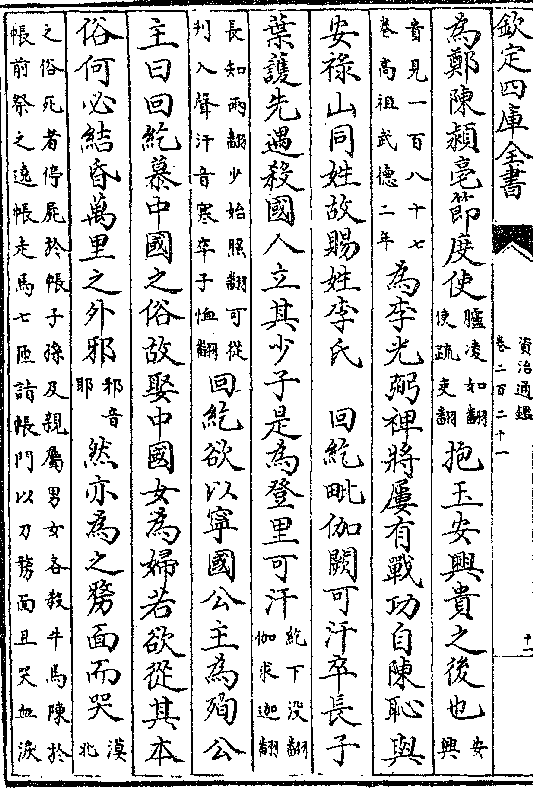 欽定四庫全書
資治通鑑
卷二百二十一
為鄭陳潁亳節度使臚凌如翻使疏吏翻抱玉安興貴之後也安興
貴見一百八十七卷高祖武德二年為李光弼裨將屢有戰功自陳恥與
安祿山同姓故賜姓李氏 回紇毗伽闕可汗卒長子
葉護先遇殺國人立其少子是為登里可汗紇下没翻伽求迦翻
長知兩翻少始照翻可從刋入聲汗音寒卒子恤翻回紇欲以寧國公主為殉公
主曰回紇慕中國之俗故娶中國女為婦若欲從其本
俗何必結昏萬里之外邪邪音耶然亦為之剺面而哭漠北
之俗死者停屍於帳子孫及親屬男女各殺牛馬陳於
帳前祭之遶帳走馬七匝詣帳門以刀剺面且哭血淚